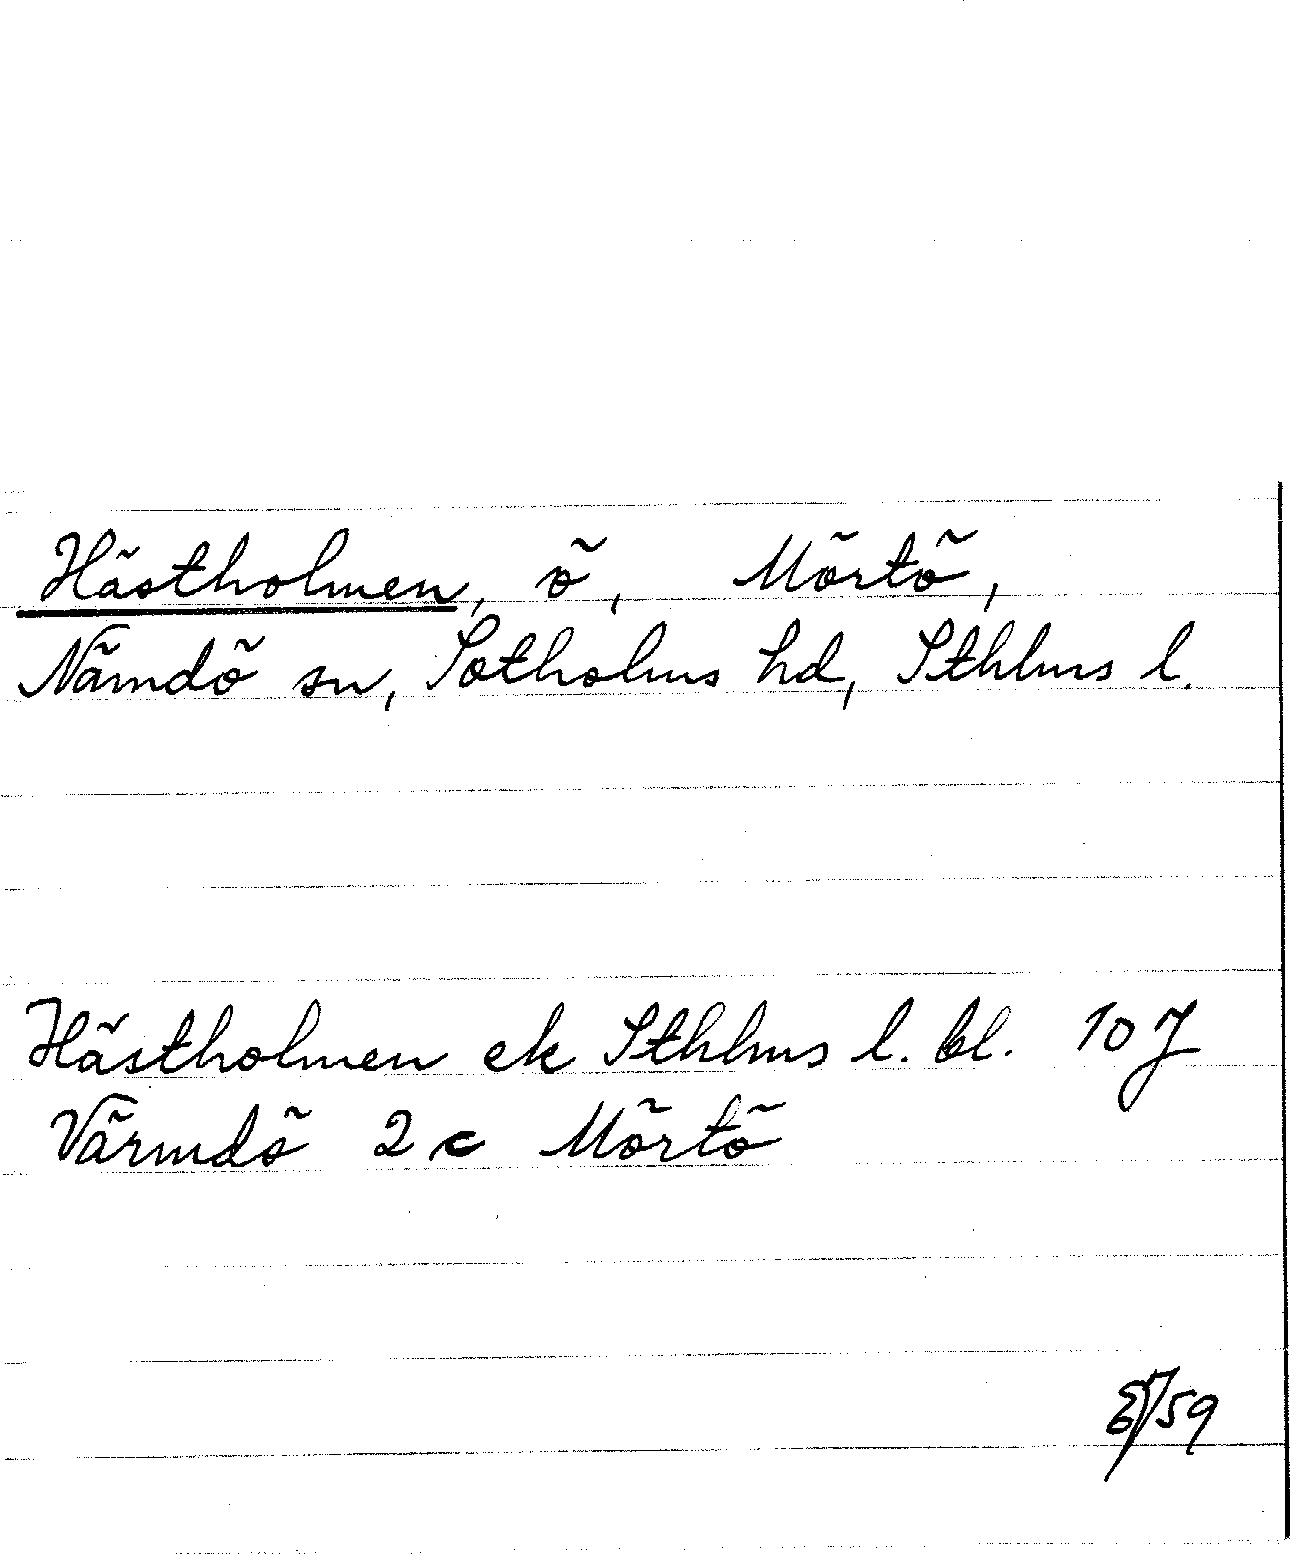 Hästholmen, ö, Mörtö,
Nämdö sn, Sotholms hd, Sthlms l.
Hästholmen ek Sthlms l. bl. 10 J
Värmdö 2 c Mörtö
/59